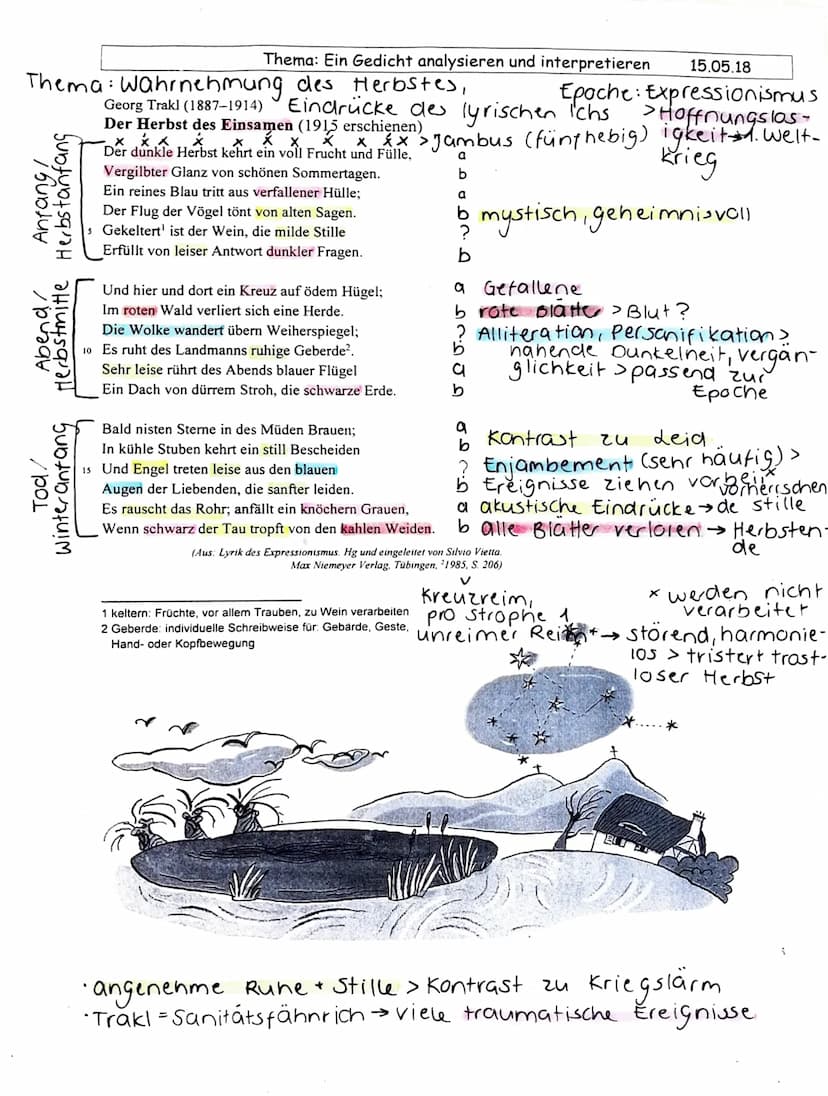 Thema: Ein Gedicht analysieren und interpretieren 15.05.18
Thema: Wahrnehmung des Herbstes,
Eindrücke des lyrischen Ichs
Epoche: Expressionismus
> Hoffnungslos-
igkeit → 1. Welt-
krieg
Georg Trakl (1887–1914)
Der Herbst des Einsamen (1915 erschienen)
x x́ x x́ x x́ x x́ x x́ x > Jambus (fünfhebig)
Anfang/
Herbstanfang
Der dunkle Herbst kehrt ein voll Frucht und Fülle, a
Vergilbter Glanz von schönen Sommertagen. b
Ein reines Blau tritt aus verfallener Hülle; a
Der Flug der Vögel tönt von alten Sagen. b mystisch, geheimnisvoll
5 Gekeltert¹ ist der Wein, die milde Stille ?
Erfüllt von leiser Antwort dunkler Fragen. b
Abend/
Herbstmitte
Und hier und dort ein Kreuz auf ödem Hügel; a Gefallene
Im roten Wald verliert sich eine Herde. b rote Blätter > Blut?
Die Wolke wandert übern Weiherspiegel; ? Alliteration, Personifikation >
10 Es ruht des Landmanns ruhige Geberde². b nahende Dunkelheit, vergän-
Sehr leise rührt des Abends blauer Flügel a glichkeit > passend zur
Ein Dach von dürrem Stroh, die schwarze Erde. b Epoche
Tod/
Winteranfang
Bald nisten Sterne in des Müden Brauen; a
In kühle Stuben kehrt ein still Bescheiden b Kontrast zu Leid
15 Und Engel treten leise aus den blauen ? Enjambement (sehr häufig) >
Augen der Liebenden, die sanfter leiden. b Ereignisse ziehen vorbei x
vorherrschen
Es rauscht das Rohr; anfällt ein knöchern Grauen, a akustische Eindrücke → de Stille
Wenn schwarz der Tau tropft von den kahlen Weiden. b alle Blätter verloren → Herbsten-
de
(Aus: Lyrik des Expressionismus. Hg und eingeleitet von Silvio Vietta.
Max Niemeyer Verlag, Tübingen, ²1985, S. 206)
Kreuzreim,
pro Strophe 1
unreimer Reim → störend, harmonie-
los > trister + trost-
loser Herbst
x werden nicht
verarbeitet
1 keltern: Früchte, vor allem Trauben, zu Wein verarbeiten
2 Geberde: individuelle Schreibweise für: Gebärde, Geste,
Hand- oder Kopfbewegung
· angenehme Ruhe + Stille > Kontrast zu Kriegslärm
· Trakl = Sanitätsfähnrich → viele traumatische Ereignisse